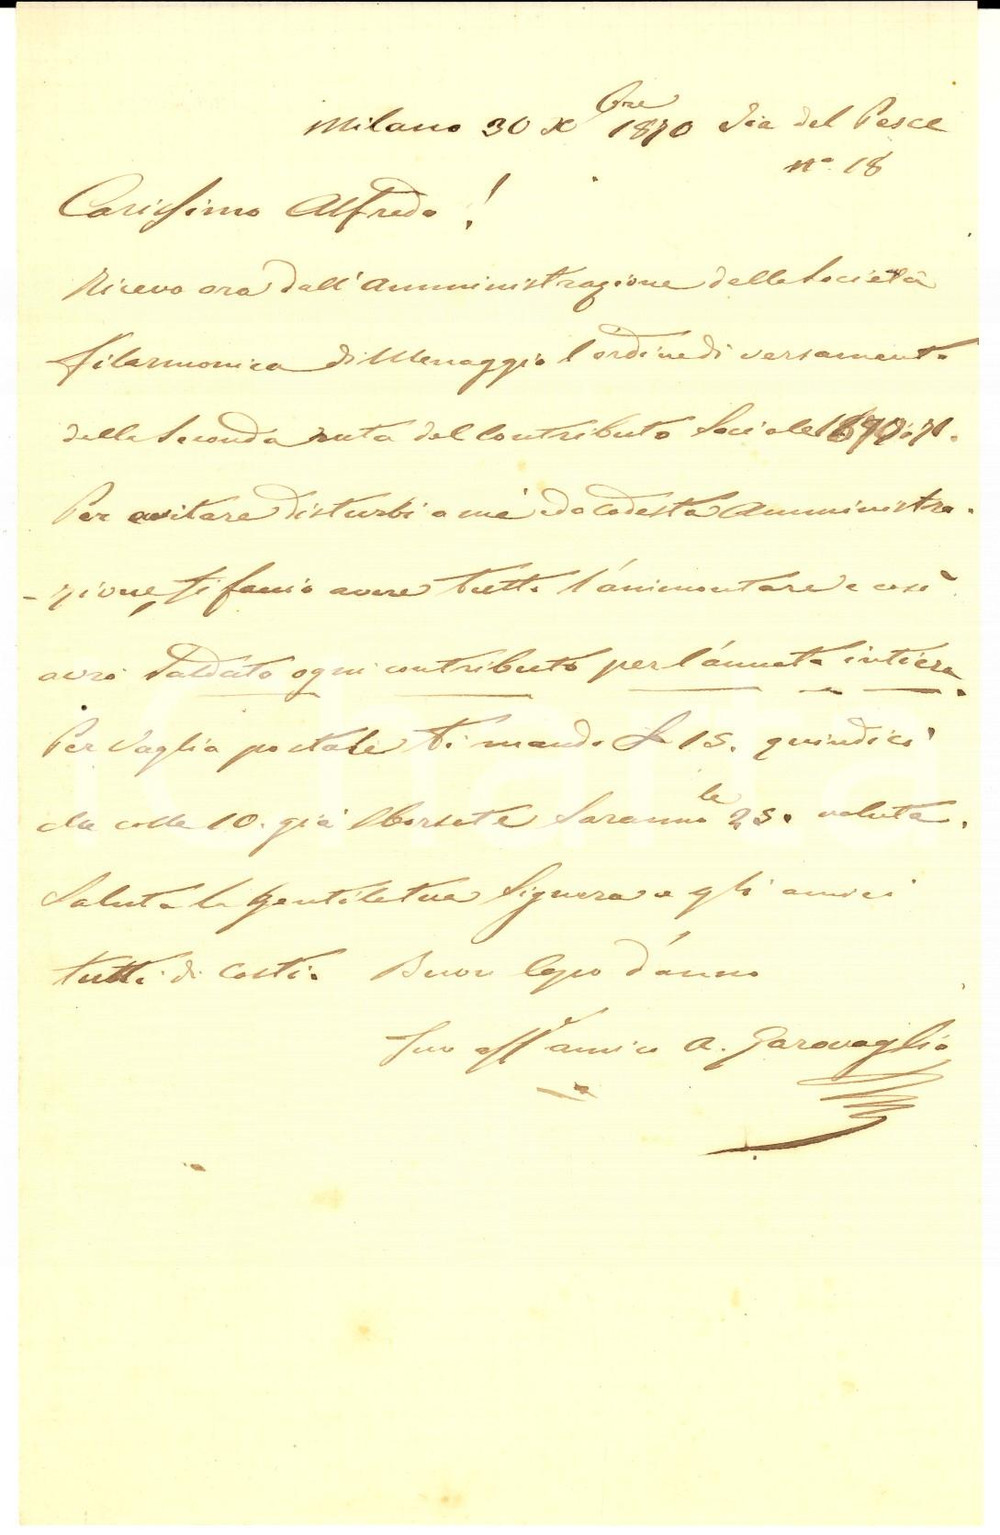 Milano 30 Xbre 1870 Via del Pesce
n.° 18
Carissimo Alfredo!
Ricevo ora dall'amministrazione della Società
filarmonica di Menaggio l'ordine di versamento
della seconda rata del contributo Sociale 1870 71.
Per evitare disturbi a me e da codesta Amministra-
-zione, ti faccio avere tutto l'ammontare e così
avrò saldato ogni contributo per l'annata intiera.
Per Vaglia postale ti mando £ 15. quindici
che colle 10. già sborsate saranno le 25. volute.
Saluta la gentile tua Signora e gli amici
tutti di costì. Buon Capo d'anno
Tuo aff.e amico A. Garovaglio
iCharta